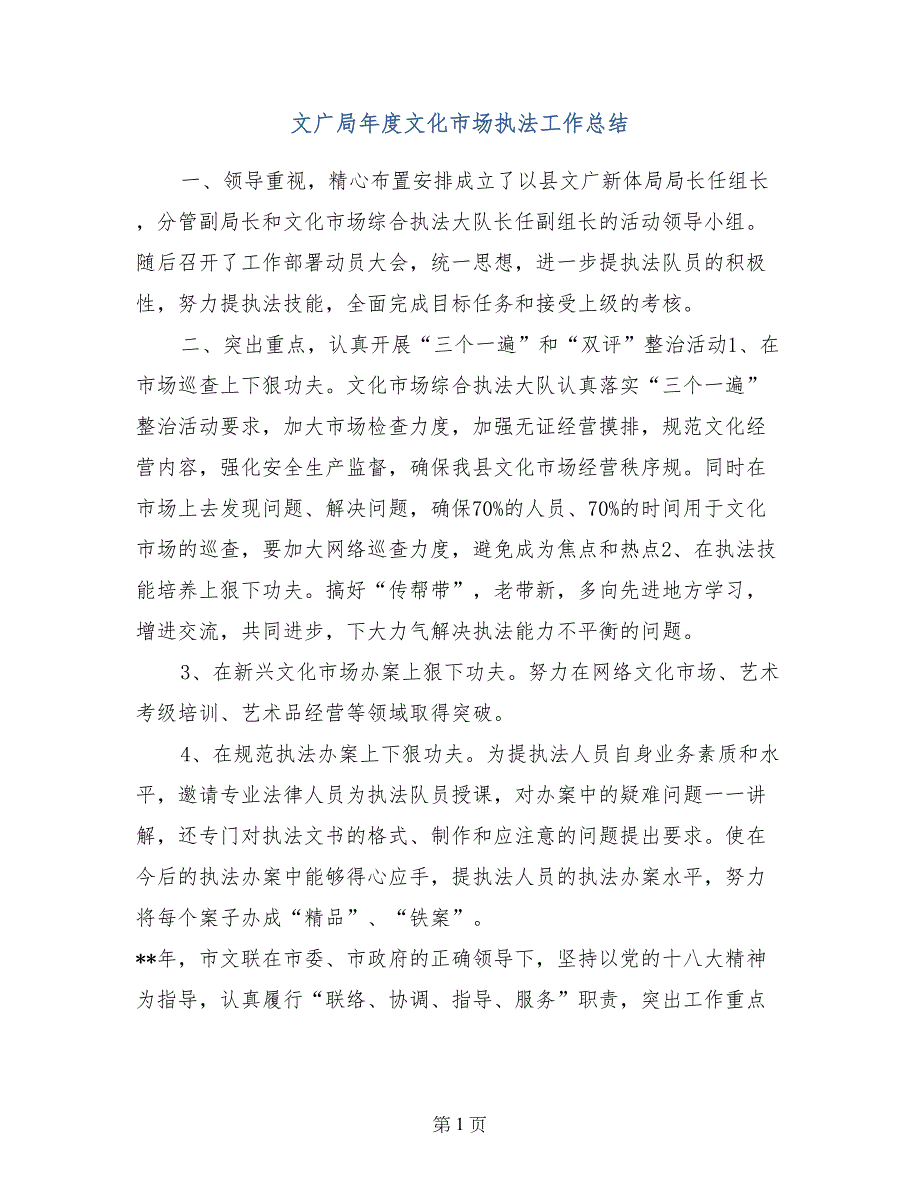 文广局年度文化市场执法工作总结
一、领导重视，精心布置安排成立了以县文广新体局局长任组长
，分管副局长和文化市场综合执法大队长任副组长的活动领导小组。
随后召开了工作部署动员大会，统一思想，进一步提执法队员的积极
性，努力提执法技能，全面完成目标任务和接受上级的考核。
二、突出重点，认真开展“三个一遍”和“双评”整治活动1、在
市场巡查上下狠功夫。文化市场综合执法大队认真落实“三个一遍”
整治活动要求，加大市场检查力度，加强无证经营摸排，规范文化经
营内容，强化安全生产监督，确保我县文化市场经营秩序规。同时在
市场上去发现问题、解决问题，确保70%的人员、70%的时间用于文化
市场的巡查，要加大网络巡查力度，避免成为焦点和热点2、在执法技
能培养上狠下功夫。搞好“传帮带”，老带新，多向先进地方学习，
增进交流，共同进步，下大力气解决执法能力不平衡的问题。
3、在新兴文化市场办案上狠下功夫。努力在网络文化市场、艺术
考级培训、艺术品经营等领域取得突破。
4、在规范执法办案上下狠功夫。为提执法人员自身业务素质和水
平，邀请专业法律人员为执法队员授课，对办案中的疑难问题一一讲
解，还专门对执法文书的格式、制作和应注意的问题提出要求。使在
今后的执法办案中能够得心应手，提执法人员的执法办案水平，努力
将每个案子办成“精品”、“铁案”。
**年，市文联在市委、市政府的正确领导下，坚持以党的十八大精神
为指导，认真履行“联络、协调、指导、服务”职责，突出工作重点
第 1 页